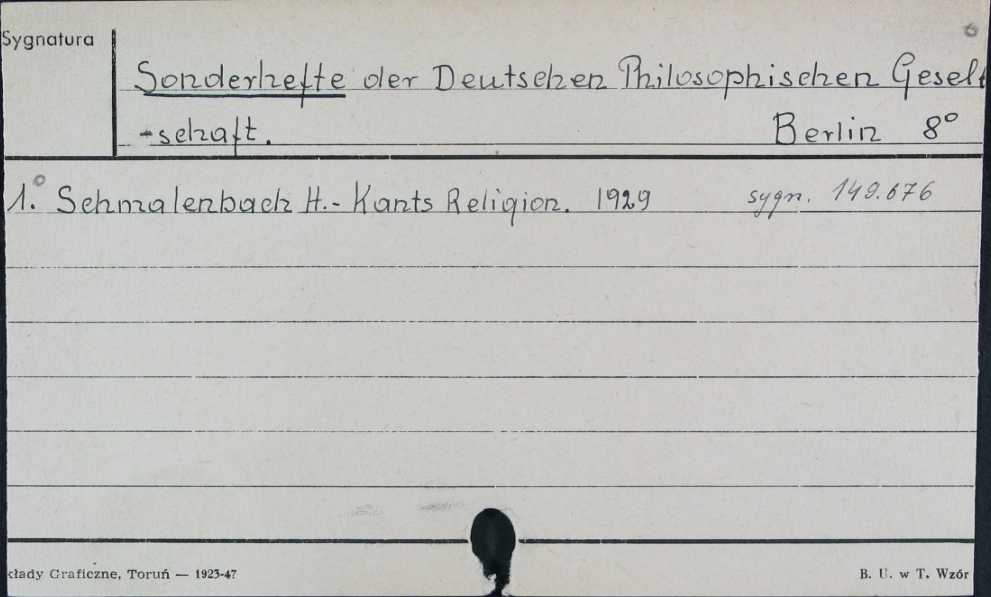 Sygnatura
Sonderhefte der Deutschen Philosophischen Gesell
-schaft. Berlin 8°
1.° Schmalenbach H.- Kants Religion. 1929 sygn. 149.676
kłady Graficzne, Toruń — 1923-47 B. U. w T. Wzór